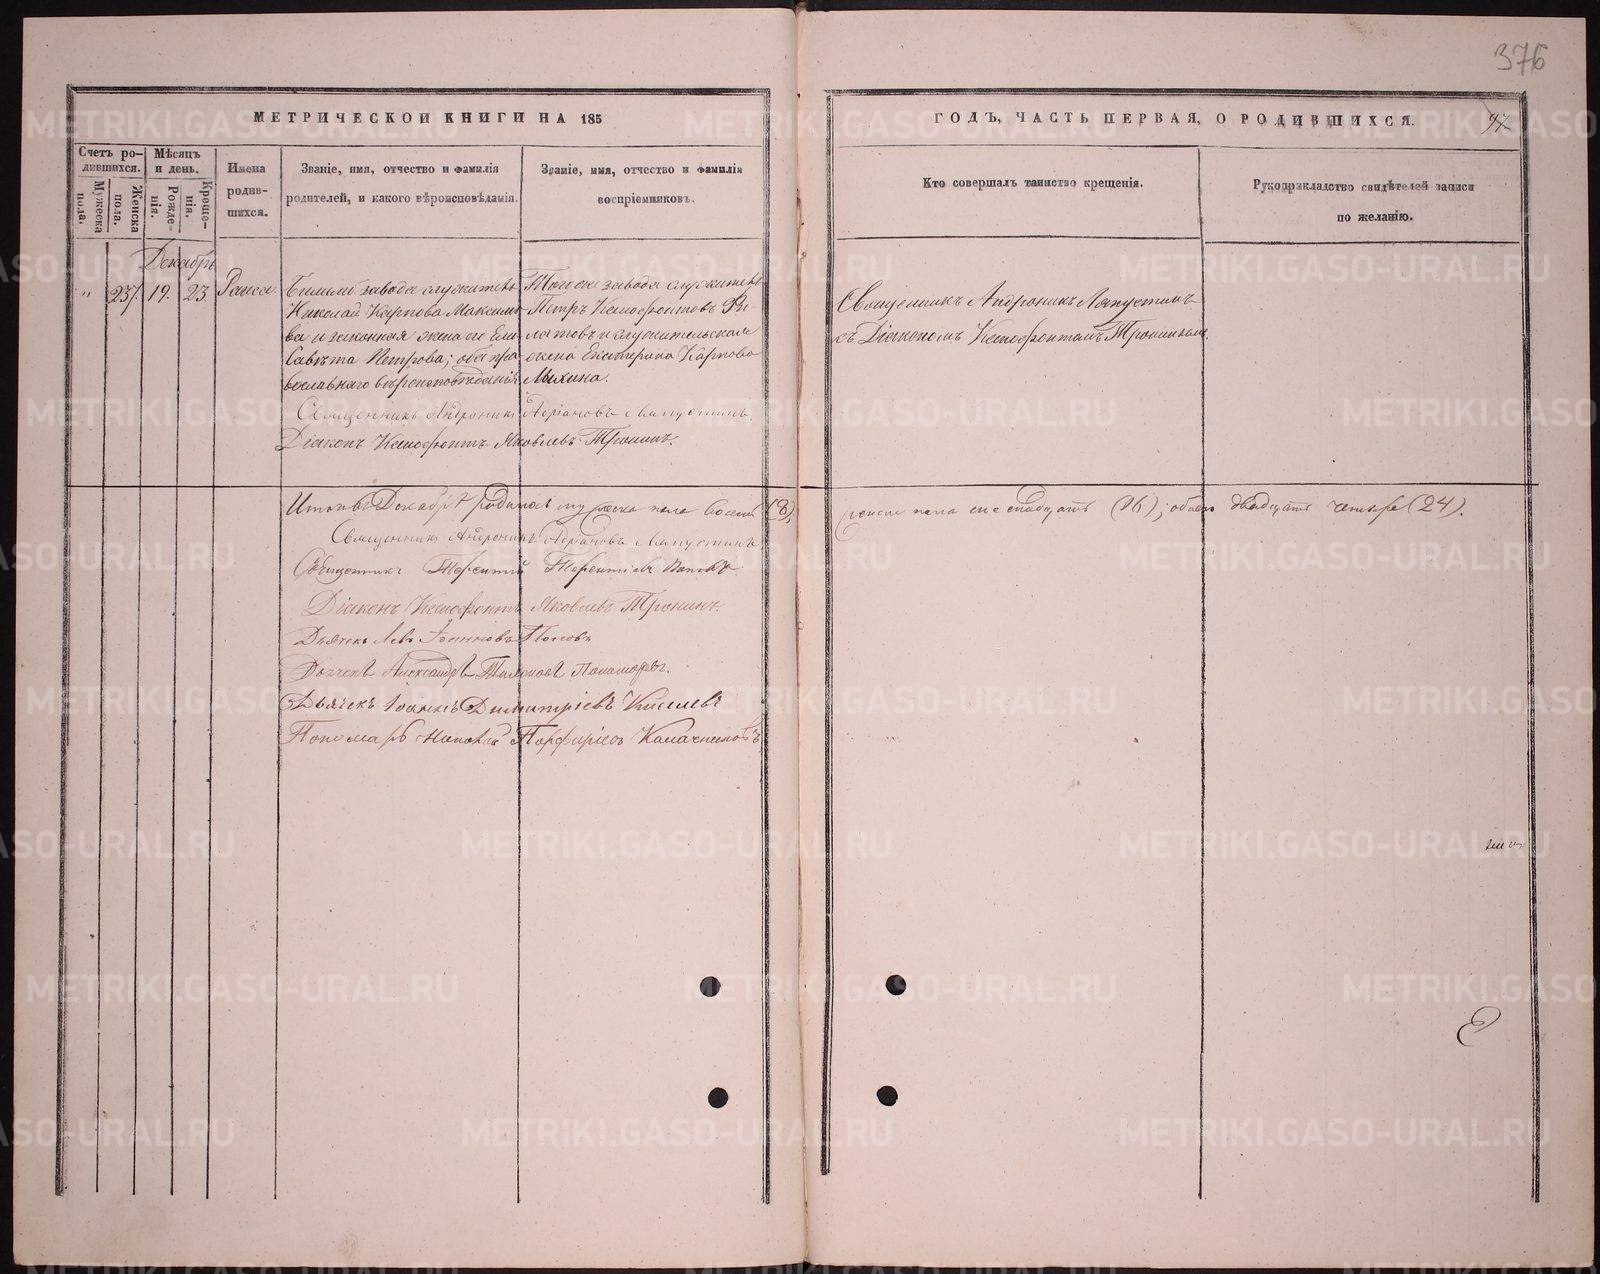 376
МЕТРИЧЕСКОЙ КНИГИ НА 185
ГОДЪ, ЧАСТЬ ПЕРВАЯ, О РОДИВШИХСЯ.
97
Счетъ родившихся.
Мужеска пола.
Женска пола.
Мѣсяцъ и день.
Рожденія.
Крещенія.
Имена родившихся.
Званіе, имя, отчество и фамилія
родителей, и какого вѣроисповѣданія.
Званіе, имя, отчество и фамилія
воспріемниковъ.
Кто совершалъ таинство крещенія.
Рукоприкладство свидѣтелей записи
по желанію.
Декабрь
" 237. 19. 23. Раиса.
завода служитель
Николай Карповъ Максимо
ва и законная жена его Ели
савѣта Петрова; оба пра
вославнаго вѣроисповѣданія
Того же завода служитель
Петръ Ксенофонтовъ Фи-
латовъ и служительская
жена Екатерина Карпова
Священникъ Андроникъ Лапустинъ
съ Діакономъ Ксенофонтомъ Тронинымъ.
Священникъ Андроникъ Адріановъ Лапустинъ.
Діаконъ Ксенофонтъ Яковлевъ Тронинъ.
Итого въ Декабрѣ родилось мужеска пола восемь (8),
женска пола шестнадцать (16); обоего двадцать четыре (24).
Священникъ Андроникъ Адріановъ Лапустинъ
Священникъ Терентій Терентіевъ Поповъ
Діаконъ Ксенофонтъ Яковлевъ Тронинъ.
Дьячекъ Левъ Іоанновъ Поповъ
Дьячекъ Александръ Пономаревъ.
Дьячекъ Іоаннъ Димитріевъ Киселевъ
Пономарь Порфирьевъ Калачниковъ
METRIKI.GASO-URAL.RU